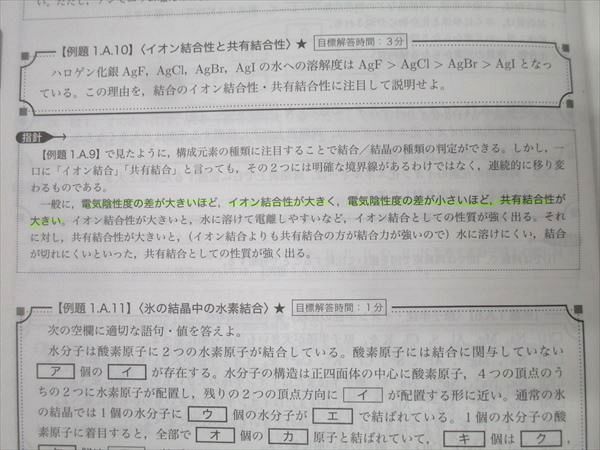 【例題 1.A.10】〈イオン結合性と共有結合性〉★ 目標解答時間：3分
ハロゲン化銀 AgF，AgCl，AgBr，AgI の水への溶解度は AgF > AgCl > AgBr > AgI となっ
ている。この理由を，結合のイオン結合性・共有結合性に注目して説明せよ。
指針
【例題 1.A.9】で見たように，構成元素の種類に注目することで結合／結晶の種類の判定ができる。しかし，一
口に「イオン結合」「共有結合」と言っても，その2つには明確な境界線があるわけではなく，連続的に移り変
わるものである。
一般に，電気陰性度の差が大きいほど，イオン結合性が大きく，電気陰性度の差が小さいほど，共有結合性が
大きい。イオン結合性が大きいと，水に溶けて電離しやすいなど，イオン結合としての性質が強く出る。それ
に対し，共有結合性が大きいと，（イオン結合よりも共有結合の方が結合力が強いので）水に溶けにくい，結合
が切れにくいといった，共有結合としての性質が強く出る。
【例題 1.A.11】〈氷の結晶中の水素結合〉★ 目標解答時間：1分
次の空欄に適切な語句・値を答えよ。
水分子は酸素原子に2つの水素原子が結合している。酸素原子には結合に関与していない
ア 個の イ が存在する。水分子の構造は正四面体の中心に酸素原子，4つの頂点のう
ちの2つに水素原子が配置し，残りの2つの頂点方向に イ が配置する形に近い。通常の氷
の結晶では1個の水分子に ウ 個の水分子が エ で結ばれている。1個の水分子の酸
素原子に着目すると，全部で オ 個の カ 原子と結ばれていて， キ 個は ク ，